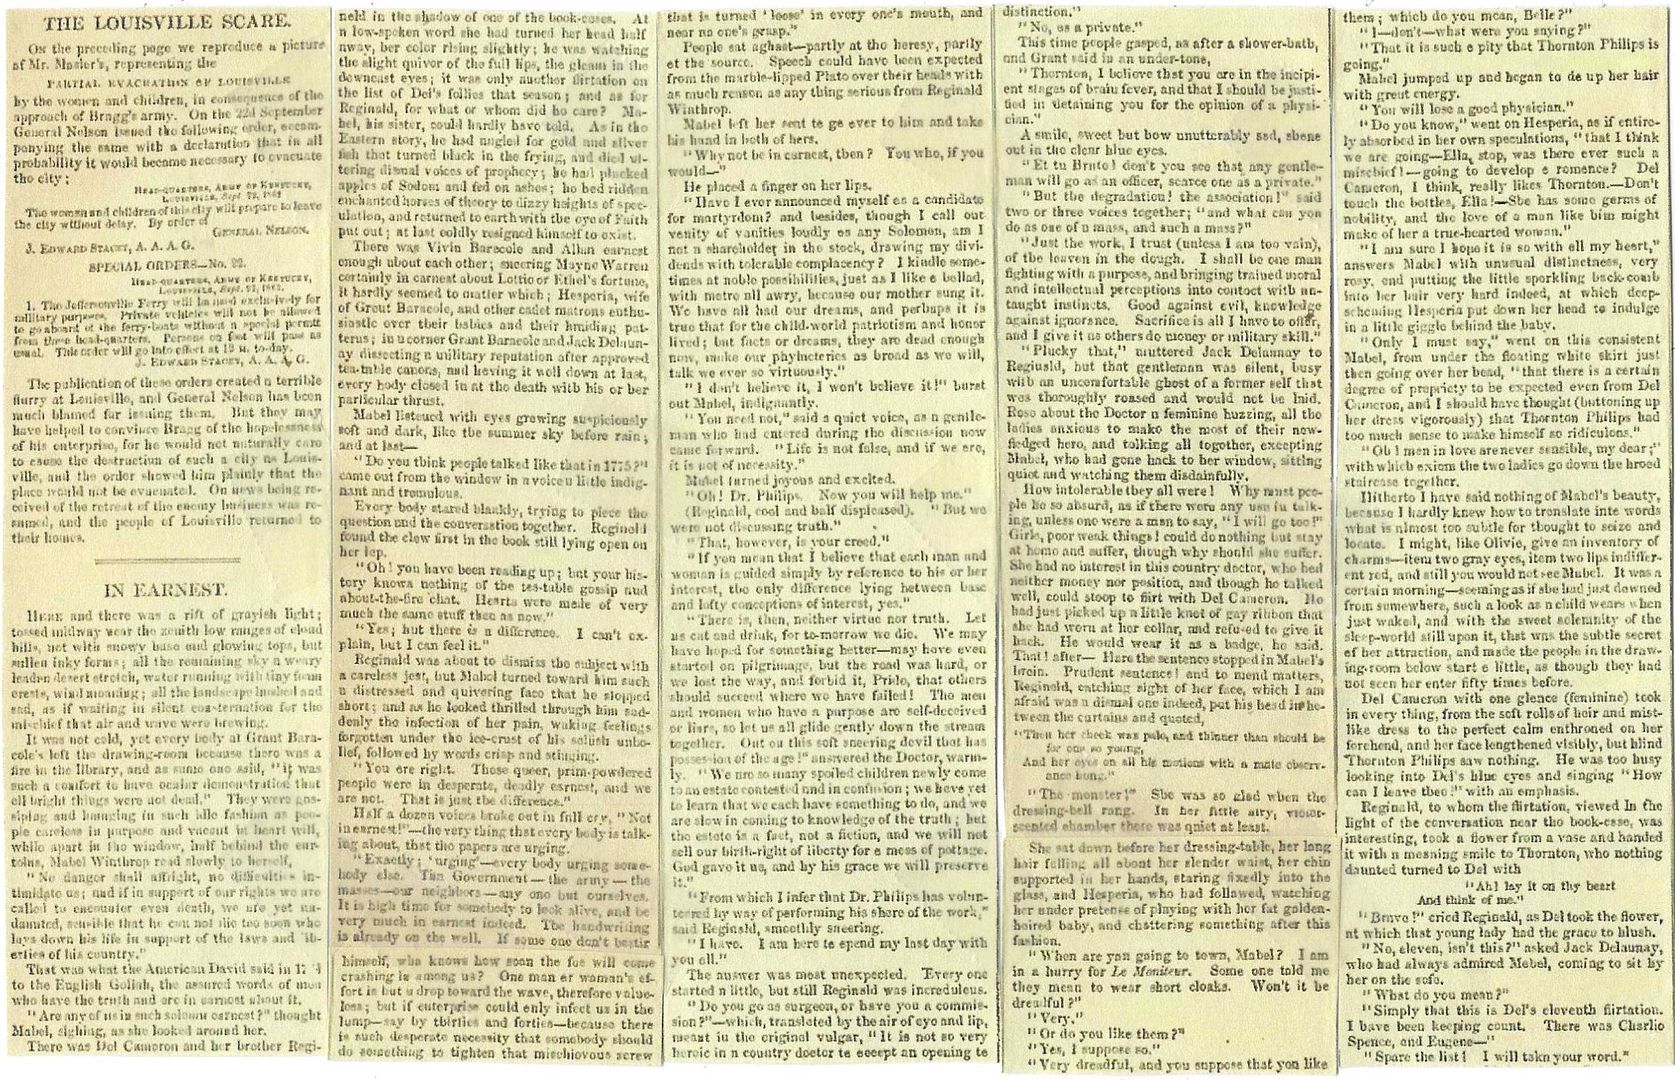 THE LOUISVILLE SCARE.
On the preceding page we reproduce a picture
of Mr. Mosler's, representing the
PARTIAL EVACUATION OF LOUISVILLE
by the women and children, in consequence of the
approach of Bragg's army. On the 22d September
General Nelson issued the following order, accom-
panying the same with a declaration that in all
probability it would become necessary to evacuate
the city;
HEAD-QUARTERS, ARMY OF KENTUCKY,
LOUISVILLE, Sept. 22, 1862
The women and children of this city will prepare to leave
the city without delay. By order of
GENERAL NELSON.
J. EDWARD STACEY, A. A. A. G.
SPECIAL ORDERS—No. 22.
HEAD-QUARTERS, ARMY OF KENTUCKY,
LOUISVILLE, Sept. 22, 1862.
1. The Jeffersonville Ferry will be used exclusively for
military purposes. Private vehicles will not be allowed
to go aboard of the ferry-boats without a special permit
from these head-quarters. Persons on foot will pass as
usual. This order will go into effect at 12 M. to-day.
J. EDWARD STACEY, A. A. A. G.
The publication of these orders created a terrible
flurry at Louisville, and General Nelson has been
much blamed for issuing them. But they may
have helped to convince Bragg of the hopelessness
of his enterprise, for he would not naturally care
to cause the destruction of such a city as Louis-
ville, and the order showed him plainly that the
place would not be evacuated. On news being re-
ceived of the retreat of the enemy business was re-
sumed, and the people of Louisville returned to
their homes.
IN EARNEST.
HERE and there was a rift of grayish light;
tossed midway near the zenith low ranges of cloud
hills, not with snowy base and glowing tops, but
sullen inky forms; all the remaining sky a weary
leaden desert stretch, water running with tiny foam
crests, wind moaning; all the landscape hushed and
sad, as if waiting in silent consternation for the
mischief that air and wave were brewing.
It was not cold, yet every body at Grant Bara-
cole's left the drawing-room because there was a
fire in the library, and as some one said, "it was
such a comfort to have ocular demonstration that
all bright things were not dead." They were gos-
siping and humming in such idle fashion as peo-
ple careless in purpose and vacant in heart will,
while apart in the window, half behind the cur-
tains, Mabel Winthrop read slowly to herself,
"No danger shall affright, no difficulties in-
timidate us; and if in support of our rights we are
called to encounter even death, we are yet un-
daunted, sensible that he can not die too soon who
lays down his life in support of the laws and lib-
erties of his country."
That was what the American David said in
to the English Goliah, the assured words of men
who have the truth and are in earnest about it.
"Are any of us in such solemn earnest?" thought
Mabel, sighing, as she looked around her.
There was Del Cameron and her brother Regi-
held in the shadow of one of the book-cases. At
a low-spoken word she had turned her head half
away, her color rising slightly; he was watching
the slight quiver of the full lips, the gleam in the
downcast eyes; it was only another flirtation on
the list of Del's follies that season; and as for
Reginald, for what or whom did he care? Ma-
bel, his sister, could hardly have told. As in the
Eastern story, he had angled for gold and silver
fish that turned black in the frying, and died ut-
tering dismal voices of prophecy; he had plucked
apples of Sodom and fed on ashes; he had ridden
enchanted horses of theory to dizzy heights of spec-
ulation, and returned to earth with the eye of Faith
put out; at last coldly resigned himself to exist.
There was Vivia Baracole and Allan earnest
enough about each other; sneering Mayne Warren
certainly in earnest about Lottie or Ethel's fortune,
it hardly seemed to matter which; Hesperia, wife
of Grout Baracole, and other cadet matrons enthu-
siastic over their babies and their braiding pat-
terns; in a corner Grant Baracole and Jack Delaun-
ay dissecting a military reputation after approved
tea-table canons, and having it well down at last,
every body closed in at the death with his or her
particular thrust.
Mabel listened with eyes growing suspiciously
soft and dark, like the summer sky before rain;
and at last—
"Do you think people talked like that in 1775?"
came out from the window in a voice a little indig-
nant and tremulous.
Every body stared blankly, trying to piece the
question and the conversation together. Reginald
found the clew first in the book still lying open on
her lap.
"Oh! you have been reading up; but your his-
tory knows nothing of the tea-table gossip and
about-the-fire chat. Hearts were made of very
much the same stuff then as now."
"Yes; but there is a difference. I can't ex-
plain, but I can feel it."
Reginald was about to dismiss the subject with
a careless jest, but Mabel turned toward him such
a distressed and quivering face that he stopped
short; and as he looked thrilled through him sud-
denly the infection of her pain, waking feelings
forgotten under the ice-crust of his selfish unbe-
lief, followed by words crisp and stinging.
"You are right. Those queer, prim-powdered
people were in desperate, deadly earnest, and we
are not. That is just the difference."
Half a dozen voices broke out in full cry, "Not
in earnest!"—the very thing that every body is talk-
ing about, that the papers are urging.
"Exactly; 'urging'—every body urging some-
body else. The Government—the army—the
masses—our neighbors—any one but ourselves.
It is high time for somebody to look alive, and be
very much in earnest indeed. The handwriting
is already on the wall. If some one don't bestir
himself, who knows how soon the foe will come
crashing in among us? One man or woman's ef-
fort is but a drop toward the wave, therefore value-
less; but if enterprise could only infect us in the
lump—say by thirties and forties—because there
is such desperate necessity that somebody should
do something to tighten that mischievous screw
that is turned 'loose' in every one's mouth, and
near no one's grasp."
People sat aghast—partly at the heresy, partly
at the source. Speech could have been expected
from the marble-lipped Plato over their heads with
as much reason as any thing serious from Reginald
Winthrop.
Mabel left her seat to go over to him and take
his hand in both of hers.
"Why not be in earnest, then? You who, if you
would—"
He placed a finger on her lips.
"Have I ever announced myself as a candidate
for martyrdom? and besides, though I call out
vanity of vanities loudly as any Solomon, am I
not a shareholder in the stock, drawing my divi-
dends with tolerable complacency? I kindle some-
times at noble possibilities, just as I like a ballad,
with metre all awry, because our mother sung it.
We have all had our dreams, and perhaps it is
true that for the child-world patriotism and honor
lived; but facts or dreams, they are dead enough
now, make our phylacteries as broad as we will,
talk we ever so virtuously."
"I don't believe it, I won't believe it!" burst
out Mabel, indignantly.
"You need not," said a quiet voice, as a gentle-
man who had entered during the discussion now
came forward. "Life is not false, and if we are,
it is not of necessity."
Mabel turned joyous and excited.
"Oh! Dr. Philips. Now you will help me."
(Reginald, cool and half displeased). "But we
were not discussing truth."
"That, however, is your creed."
"If you mean that I believe that each man and
woman is guided simply by reference to his or her
interest, the only difference lying between base
and lofty conceptions of interest, yes."
"There is, then, neither virtue nor truth. Let
us eat and drink, for to-morrow we die. We may
have hoped for something better—may have even
started on pilgrimage, but the road was hard, or
we lost the way, and forbid it, Pride, that others
should succeed where we have failed! The men
and women who have a purpose are self-deceived
or liars, so let us all glide gently down the stream
together. Out on this soft sneering devil that has
possession of the age!" answered the Doctor, warm-
ly. "We are so many spoiled children newly come
to an estate contested and in confusion; we have yet
to learn that we each have something to do, and we
are slow in coming to knowledge of the truth; but
the estate is a fact, not a fiction, and we will not
sell our birth-right of liberty for a mess of pottage.
God gave it us, and by his grace we will preserve
it."
"From which I infer that Dr. Philips has volun-
teered by way of performing his share of the work,"
said Reginald, smoothly sneering.
"I have. I am here to spend my last day with
you all."
The answer was most unexpected. Every one
started a little, but still Reginald was incredulous.
"Do you go as surgeon, or have you a commis-
sion?"—which, translated by the air of eye and lip,
meant in the original vulgar, "It is not so very
heroic in a country doctor to accept an opening to
distinction."
"No, as a private."
This time people gasped, as after a shower-bath,
and Grant said in an under-tone,
"Thornton, I believe that you are in the incipi-
ent stages of brain fever, and that I should be justi-
fied in detaining you for the opinion of a physi-
cian."
A smile, sweet but how unutterably sad, shone
out in the clear blue eyes.
"Et tu Brute! don't you see that any gentle-
man will go as an officer, scarce one as a private."
"But the degradation! the association!" said
two or three voices together; "and what can you
do as one of a mass, and such a mass?"
"Just the work, I trust (unless I am too vain),
of the leaven in the dough. I shall be one man
fighting with a purpose, and bringing trained moral
and intellectual perceptions into contact with un-
taught instincts. Good against evil, knowledge
against ignorance. Sacrifice is all I have to offer,
and I give it as others do money or military skill."
"Plucky that," muttered Jack Delaunay to
Reginald, but that gentleman was silent, busy
with an uncomfortable ghost of a former self that
was thoroughly roused and would not be laid.
Rose about the Doctor a feminine buzzing, all the
ladies anxious to make the most of their new-
fledged hero, and talking all together, excepting
Mabel, who had gone back to her window, sitting
quiet and watching them disdainfully.
How intolerable they all were! Why must peo-
ple be so absurd, as if there were any use in talk-
ing, unless one were a man to say, "I will go too!"
Girls, poor weak things! could do nothing but stay
at home and suffer, though why should she suffer.
She had no interest in this country doctor, who had
neither money nor position, and though he talked
well, could stoop to flirt with Del Cameron. He
had just picked up a little knot of gay ribbon that
she had worn at her collar, and refused to give it
back. He would wear it as a badge, he said.
That! after— Here the sentence stopped in Mabel's
brain. Prudent sentence! and to mend matters,
Reginald, catching sight of her face, which I am
afraid was a dismal one indeed, put his head in be-
tween the curtains and quoted,
"Then her cheek was pale, and thinner than should be
for one so young,
And her eyes on all his motions with a mute observ-
ance hung."
"The monster!" She was so glad when the
dressing-bell rang. In her little airy, violet-
scented chamber there was quiet at least.
She sat down before her dressing-table, her long
hair falling all about her slender waist, her chin
supported in her hands, staring fixedly into the
glass, and Hesperia, who had followed, watching
her under pretense of playing with her fat golden-
haired baby, and chattering something after this
fashion.
"When are you going to town, Mabel? I am
in a hurry for Le Moniteur. Some one told me
they mean to wear short cloaks. Won't it be
dreadful?"
"Very."
"Or do you like them?"
"Yes, I suppose so."
"Very dreadful, and you suppose that you like
them; which do you mean, Belle?"
"I—don't—what were you saying?"
"That it is such a pity that Thornton Philips is
going."
Mabel jumped up and began to do up her hair
with great energy.
"You will lose a good physician."
"Do you know," went on Hesperia, as if entire-
ly absorbed in her own speculations, "that I think
we are going—Ella, stop, was there ever such a
mischief!—going to develop a romance? Del
Cameron, I think, really likes Thornton.—Don't
touch the bottles, Ella!—She has some germs of
nobility, and the love of a man like him might
make of her a true-hearted woman."
"I am sure I hope it is so with all my heart,"
answers Mabel with unusual distinctness, very
rosy, and putting the little sparkling back-comb
into her hair very hard indeed, at which deep-
scheming Hesperia put down her head to indulge
in a little giggle behind the baby.
"Only I must say," went on this consistent
Mabel, from under the floating white skirt just
then going over her head, "that there is a certain
degree of propriety to be expected even from Del
Cameron, and I should have thought (buttoning up
her dress vigorously) that Thornton Philips had
too much sense to make himself so ridiculous."
"Oh! men in love are never sensible, my dear;"
with which axiom the two ladies go down the broad
staircase together.
Hitherto I have said nothing of Mabel's beauty,
because I hardly knew how to translate into words
what is almost too subtle for thought to seize and
locate. I might, like Olivia, give an inventory of
charms—item two gray eyes, item two lips indiffer-
ent red, and still you would not see Mabel. It was a
certain morning—seeming as if she had just dawned
from somewhere, such a look as a child wears when
just waked, and with the sweet solemnity of the
sleep-world still upon it, that was the subtle secret
of her attraction, and made the people in the draw-
ing-room below start a little, as though they had
not seen her enter fifty times before.
Del Cameron with one glance (feminine) took
in every thing, from the soft rolls of hair and mist-
like dress to the perfect calm enthroned on her
forehead, and her face lengthened visibly, but blind
Thornton Philips saw nothing. He was too busy
looking into Del's blue eyes and singing "How
can I leave thee!" with an emphasis.
Reginald, to whom the flirtation, viewed in the
light of the conversation near the book-case, was
interesting, took a flower from a vase and handed
it with a meaning smile to Thornton, who nothing
daunted turned to Del with
"Ah! lay it on thy heart
And think of me."
"Bravo!" cried Reginald, as Del took the flower,
at which that young lady had the grace to blush.
"No, eleven, isn't this?" asked Jack Delaunay,
who had always admired Mabel, coming to sit by
her on the sofa.
"What do you mean?"
"Simply that this is Del's eleventh flirtation.
I have been keeping count. There was Charlie
Spence, and Eugene—"
"Spare the list! I will take your word."